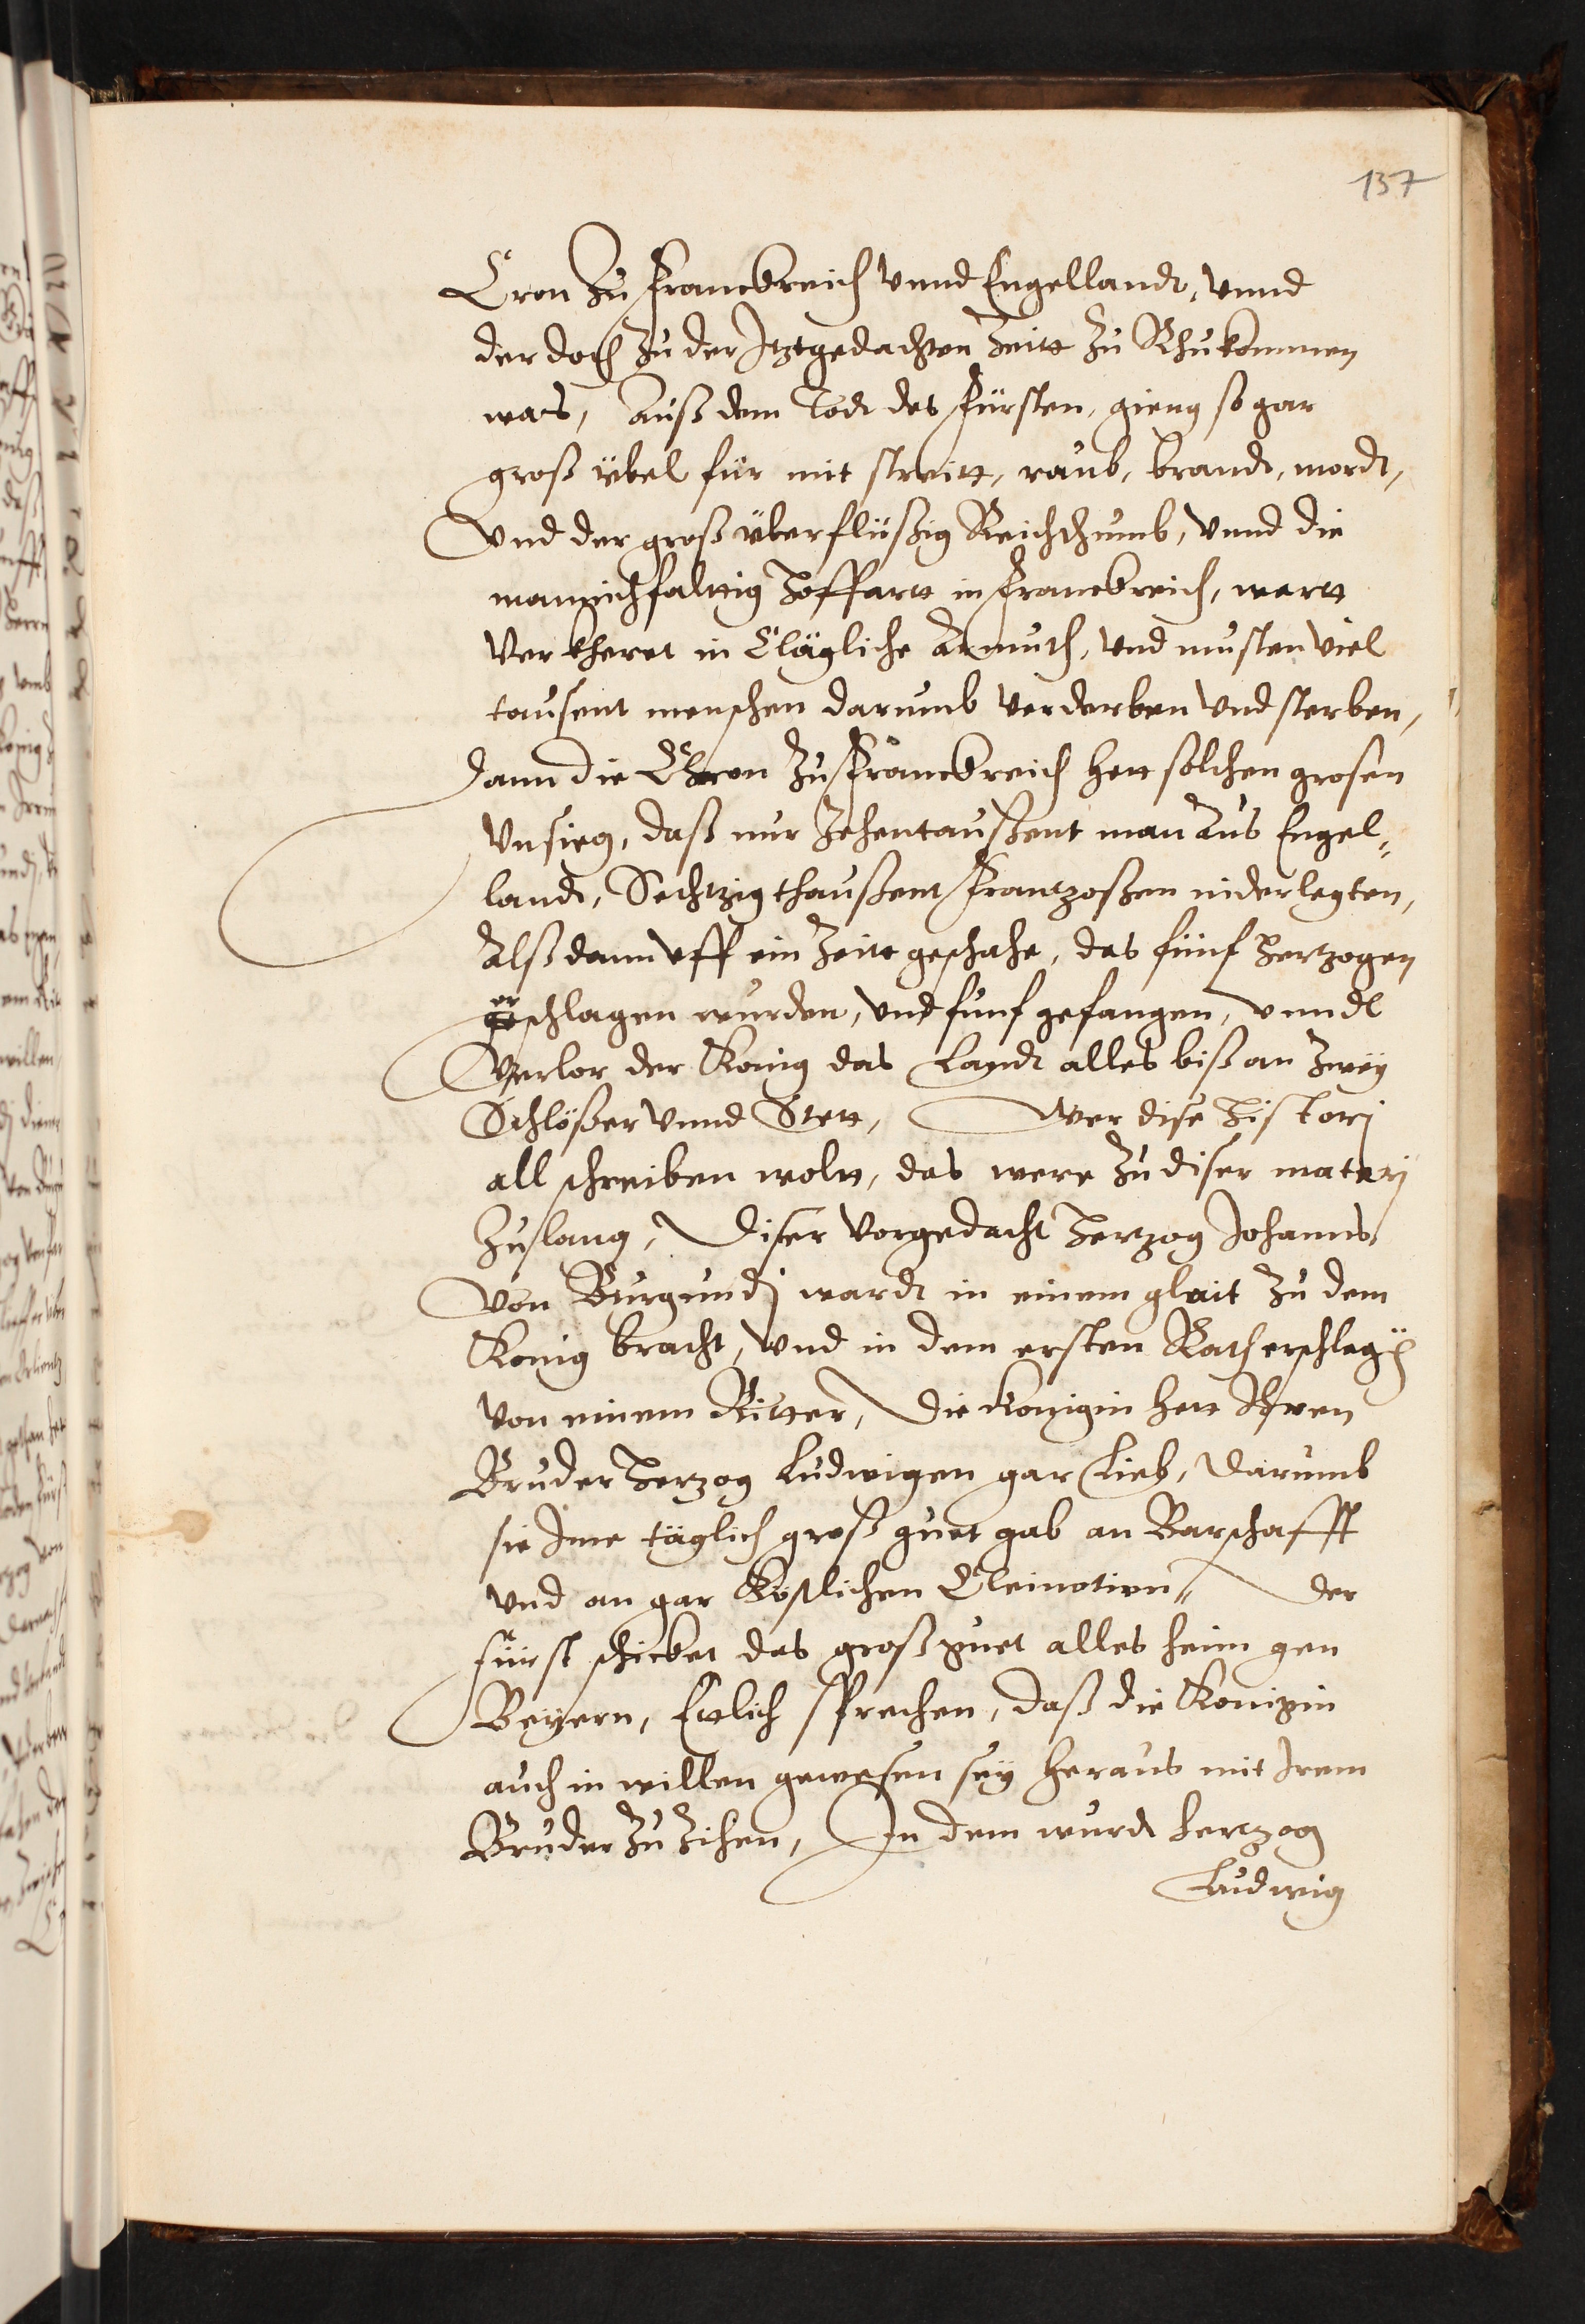 137
Cron zu Franckreich vnnd Engellandt, vnnd
der doch zu der Jtztgedachten Zeitt zu Rhu kommen
was, Auß dem Todt des Fürsten, gieng so gar
groß übel für mit streitt, raub, brandt, mordt,
Vnd der groß überflüßig Reichthumb, vnnd die
mannichfalttig Hoffartt in Franckreich, wartt
verkheret in Clägliche Armuth, vnd musten viel
tausent menschen darumb verderben vnd sterben,
dann die Chron zu Franckreich hett solchen grosen
Vnsieg, daß nur Zehentaußent man Aus Engel-
landt, Sechtzig thaußent Frantzoßen niderlegten,
Alß dann vff ein Zeitt geschahe, das fünf Hertzogen
erschlagen wurden, vnd funf gefangen, vnndt
Verlor der König das Landt alles biß an zwey
Schlößer vnnd Stett, Wer dise Histori
all schreiben woltt, das were zu diser materj
zu lang, Diser vorgedacht Hertzog Johanns
von Burgundj wardt in einem glait zu dem
König bracht, vnd in dem ersten Rath erschlagen
von einem Ritter, Die Königin hett Jren
Bruder Hertzog Ludwigen gar Lieb, Darumb
sie Jme täglich groß guet gab an Barschafft
vnd an gar Köstlichen Cleinotien, Der
fürst schicket das groß guet alles heim gen
Beyern, Ettlich sprechen, daß die Königin
auch in willen gewesen sey heraus mit Jrem
Bruder zu Zihen, Jn dem wurdt hertzog
Ludwig